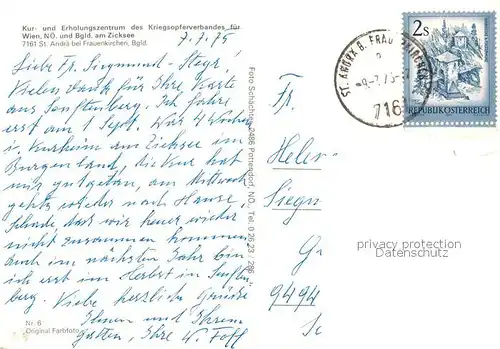 Kur- und Erholungszentrum des Kriegsopferverbandes für
Wien, NÖ. und Bgld. am Zicksee
7161 St. Andrä bei Frauenkirchen, Bgld.
7.7.75
Liebe Fr. Siegmund-Stegr!
Vielen Dank für Ihre Karte
aus Senftenberg. Ich fahre
erst am Sept. War 4 Wochen
in Kurheim am Zicksee im
Burgenland, die Kur hat
mir gutgetan, am Mittwoch
gehts wieder nach Hause
Schade, daß wir heuer wieder
nicht zusammen kommen
auch im nächsten Jahr bin
ich erst im Herbst in Senften-
berg. Viele herzliche Grüße
Ihnen und Ihrem
Gatten, Ihre W.
Nr. 6
"Original Farbfoto"
Foto Schächter, 2486 Pottendorf, NÖ., Tel. 0 26 23 / 286
2s
REPUBLIK ÖSTERREICH
ST. ANDRÄ B. FRAUENKIRCHEN
7161
Fr.
Helen
Siegm
G
9494
privacy protection
Datenschutz